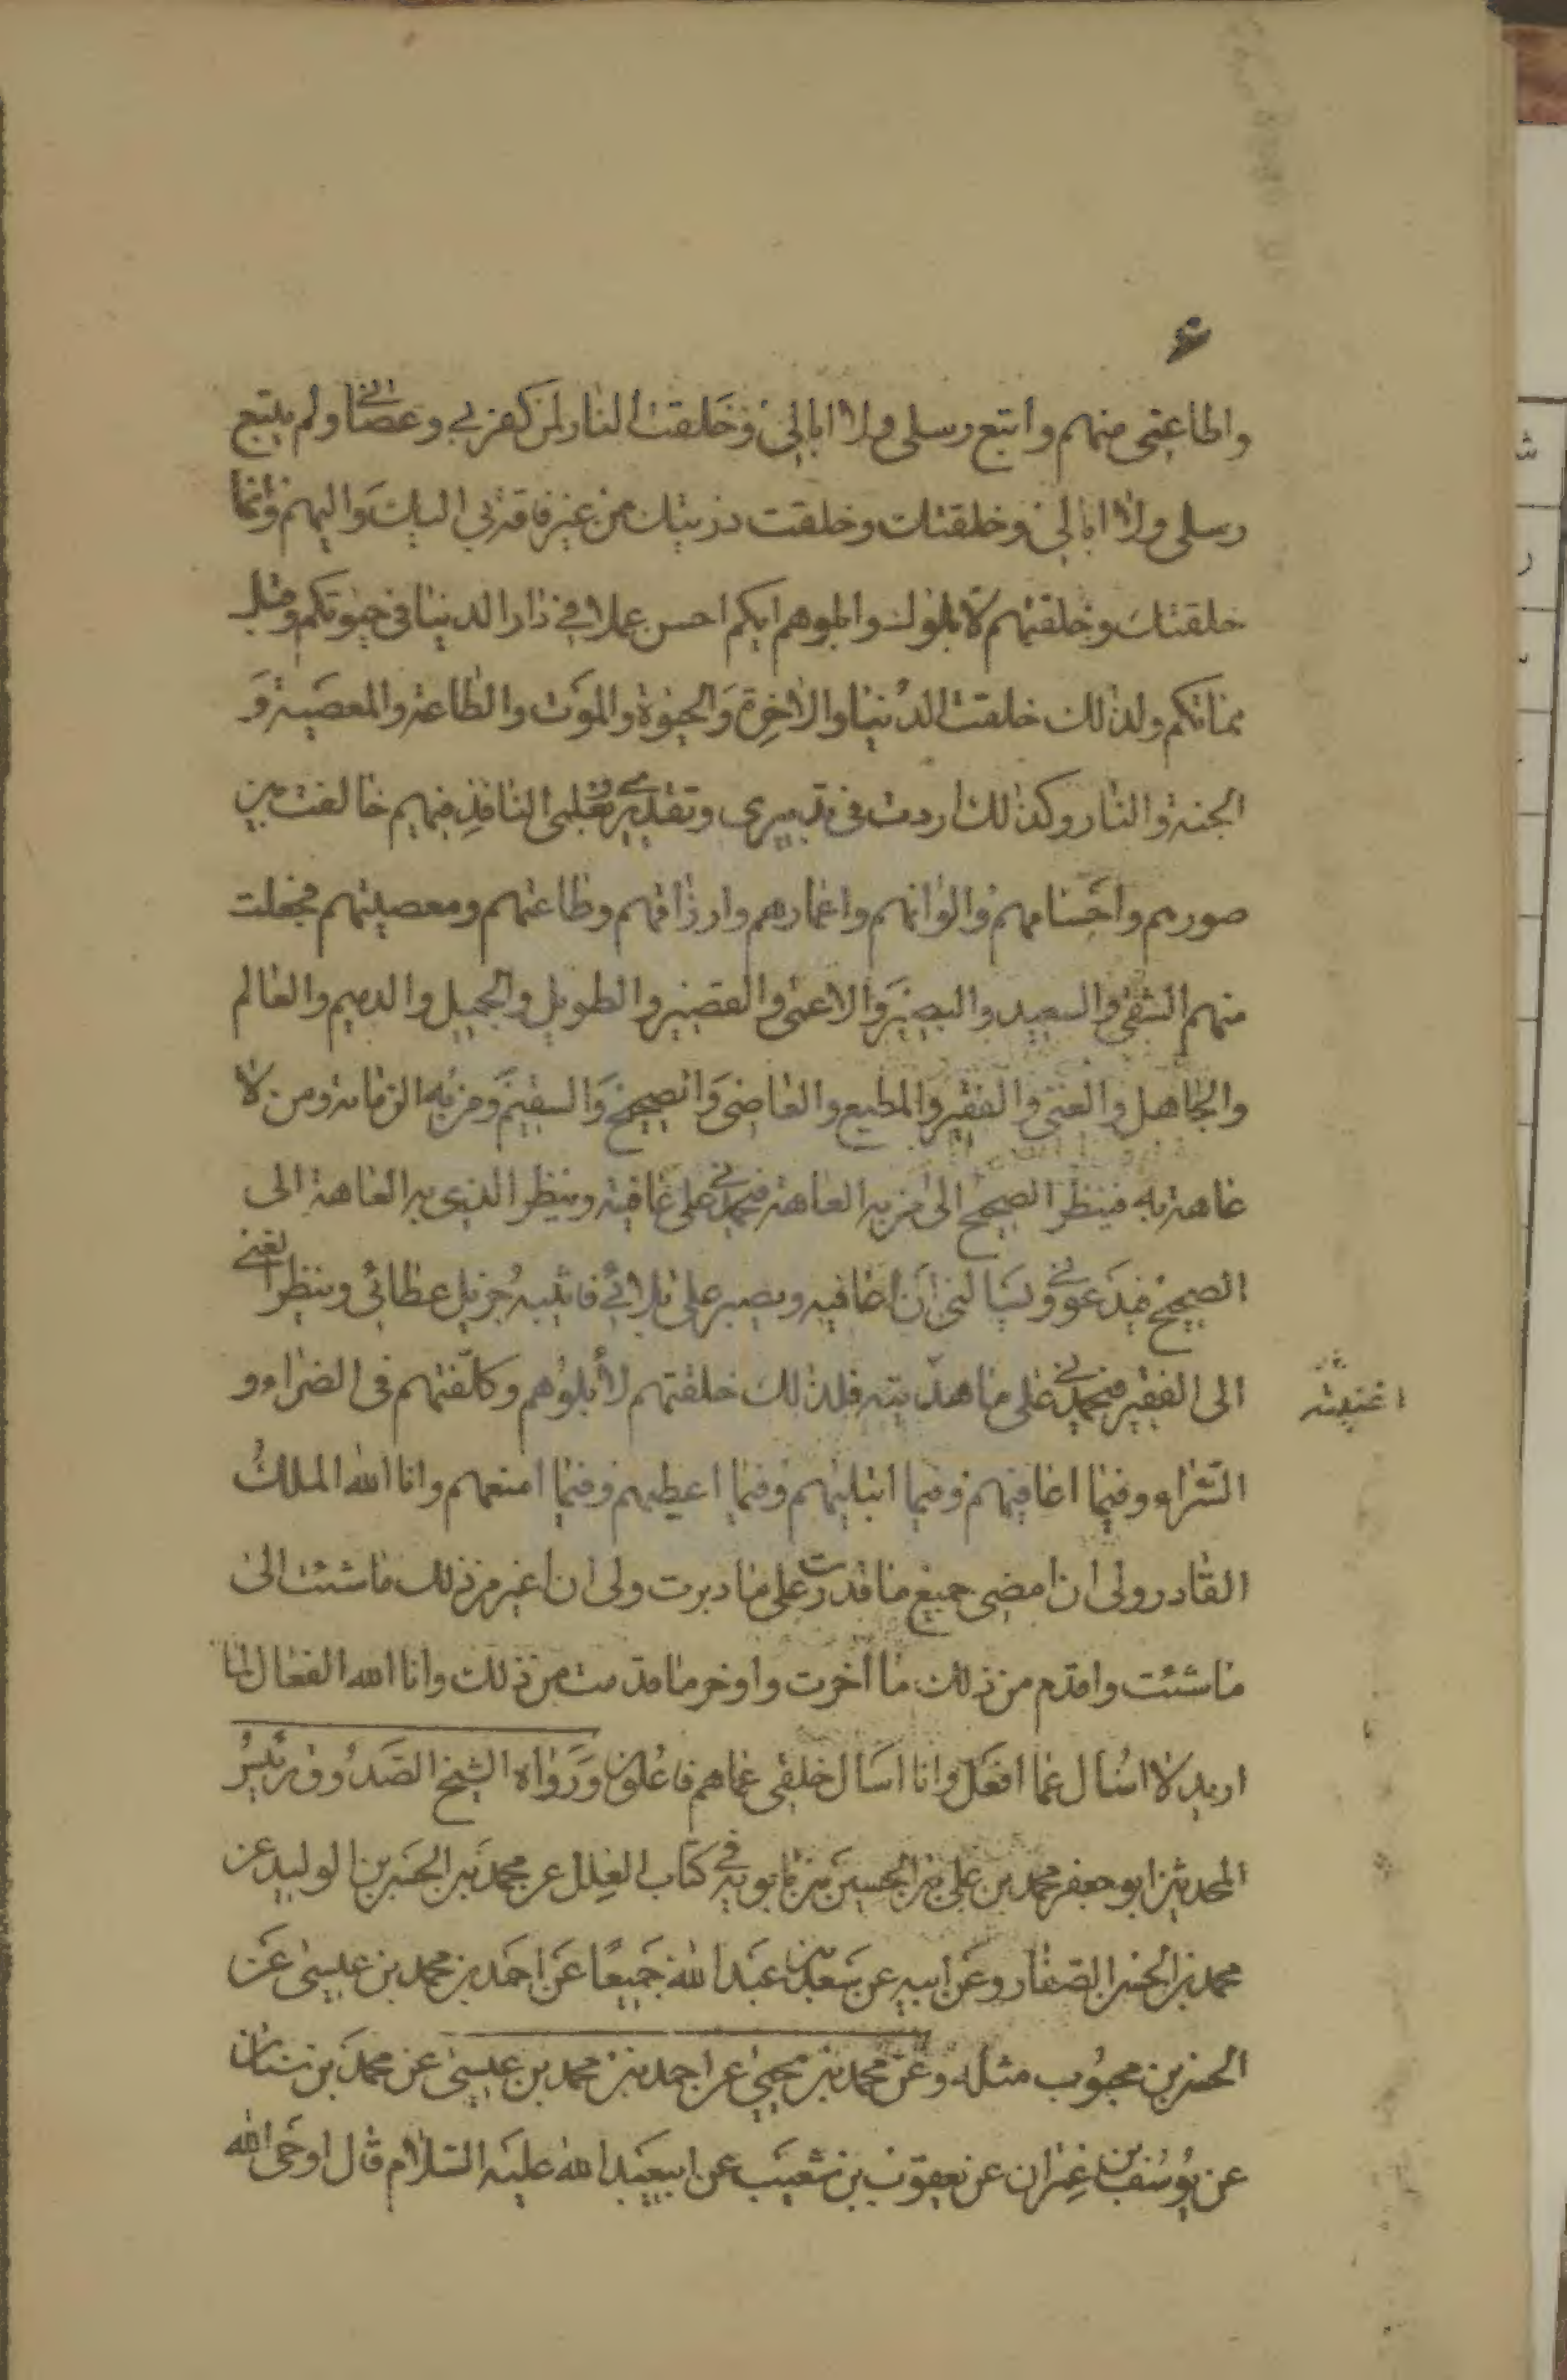 ۶
واطاعنى منهم واتبع رسلى ولا ابالى وخلقت النار لمن كفر بى وعصانى ولم يتبع
رسلى ولا ابالى وخلقتك وخلقت ذريتك من غير فاقة بى اليك واليهم وانما
خلقتك وخلقتهم لابلوك وابلوهم ايكم احسن عملا فى دار الدنيا فى حيوتكم وقبل
مماتكم ولذلك خلقت الدنيا والاخرة والحيوة والموت والطاعة والمعصية و
الجنة والنار وكذلك اردت فى تدبيرى وتقديرى وبعلمى النافذ فيهم خالفت بين
صورهم واجسامهم والوانهم واعمارهم وارزاقهم وطاعتهم ومعصيتهم فجعلت
منهم الشقى والسعيد والبصير والاعمى والقصير والطويل والجميل والدميم والعالم
والجاهل والغنى والفقير والمطيع والعاصى والصحيح والسقيم ومن به الزمانة ومن لا
عاهة به فينظر الصحيح الى من به العاهة فيحمدنى على عافيته وينظر الذى به العاهة الى
الصحيح فيدعونى ويسالنى ان اعافيه ويصبر على بلائى فاثيبه جزيل عطائى وينظر الغنى
الى الفقير فيحمدنى على ما هديته فلذلك خلقتهم لأبلوهم وكلّفتهم فى الضراء و
السّراء وفيما اعافيهم وفيما ابتليهم وفيما اعطيهم وفيما امنعهم وانا الله الملك
القادر ولى ان امضى جميع ما قدرت على ما دبرت ولى ان اغير من ذلك ما شئت الى
ما شئت واقدم من ذلك ما اخرت واوخر ما قدمت من ذلك وانا الله الفعال لما
اريد لا اسال عما افعل وانا اسال خلقى عما هم فاعلون ورواه الشيخ الصدوق رئيس
المحدثين ابو جعفر محمد بن على بن الحسين بن بابويه فى كتاب العلل عن محمد بن الحسن بن الوليد عن
محمد بن الحسن الصفار وعن ابيه عن سعد بن عبد الله جميعًا عن احمد بن محمد بن عيسى عن
الحسن بن محبوب مثله وعن محمد بن يحيى عن احمد بن محمد بن عيسى عن محمد بن سنان
عن يوسف بن عمران عن يعقوب بن شعيب عن ابيعبد الله عليه السّلام قال اوحى الله